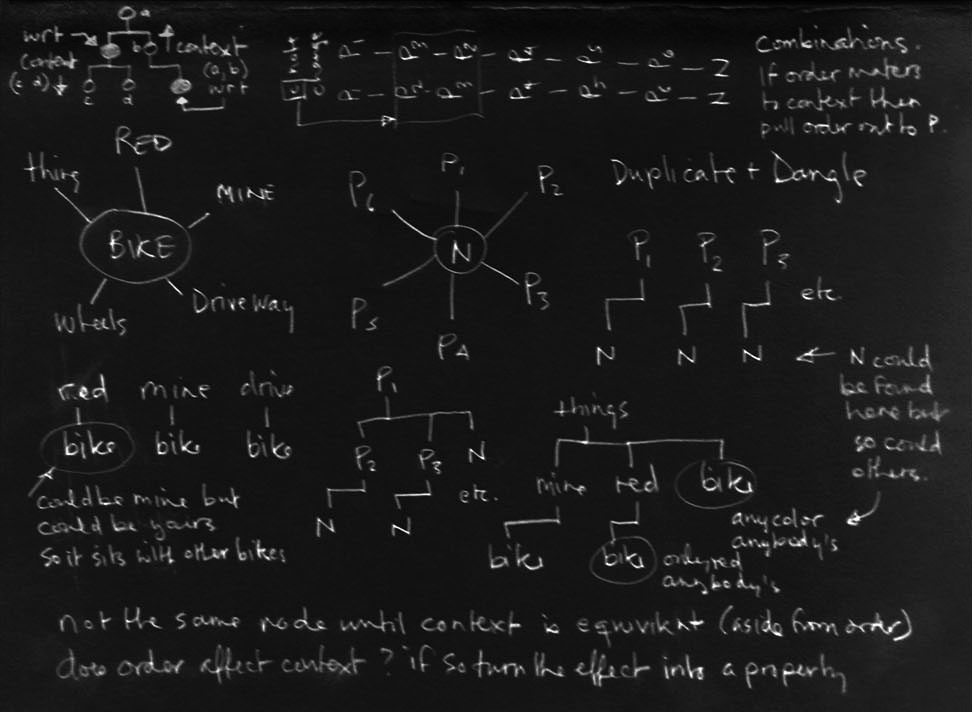 a
wrt
content
(c d)
b
context
(a, b)
wrt
c
d
Z
Z
Combinations.
If order maters
to context then
pull order out to P.
thing
RED
MINE
BIKE
wheels
Driveway
P1
P2
P6
N
P3
P5
P4
Duplicate + Dangle
P1 P2 P3
etc.
N N N
N could
be found
here but
so could
others.
red mine drive
bike bike bike
could be mine but
could be yours
so it sits with other bikes
P1
P2 P3 N
etc.
N N
things
mine red bike
any color
anybody's
bike bike only red
anybody's
not the same node until context is equivilent (aside from order)
does order affect context? if so turn the effect into a property